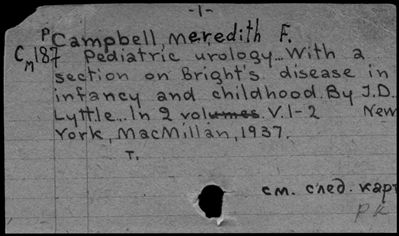 -1-
P Campbell, Meredith F.
CM187 Pediatric urology... With a
section on Bright's disease in
infancy and childhood. By J.D.
Lyttle... In 2 volumes. V. 1-2 New
York, MacMillan, 1937.
т.
см. след. карт
рк